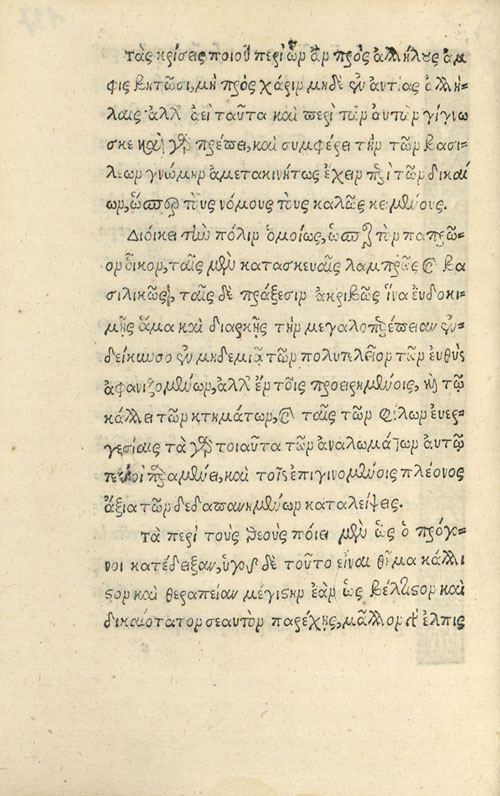 Τὰς κρίσεις ποιοῦ περὶ ὧν ἂν πρὸς ἀλλήλους ἀμ
φισβητῶσι, μὴ πρὸς χάριν μηδὲ ἐναντίας ἀλλή-
λαις ἀλλ' ἀεὶ ταῦτα καὶ περὶ τῶν αὐτῶν γίγνω
σκε καὶ γὰρ πρέπει, καὶ συμφέρει τὴν τῶν βασι-
λέων γνώμην ἀμετακινήτως ἔχειν περὶ τῶν δικαί
ων, ὥσπερ τοὺς νόμους τοὺς καλῶς κειμένους.
Διόικει τὴν πόλιν ὁμοίως, ὥσπερ τὸν πατρῶ-
ον ὂικον, ταῖς μὲν κατασκευαῖς λαμπρῶς καὶ βα
σιλικῶς, ταῖς δὲ πράξεσιν ἀκριβῶς ἵνα ἐυδοκι-
μῇς ἅμα καὶ διαρκῇς τὴν μεγαλοπρέπειαν ἐν-
δείκνυσο ἐν μηδεμιᾷ τῶν πολυτελειῶν τῶν ἐυθὺς
ἀφανιζομένων, ἀλλ' ἔν τοῖς προειρημένοις, καὶ τῷ
κάλλει τῶν κτημάτων, καὶ ταῖς τῶν φίλων ἐυερ-
γεσίαις τὰ γὰρ τοιαῦτα τῶν ἀναλωμάτων ἀυτῷ
τέ σοι παραμένει, καὶ τοῖς ἐπιγινομένοις πλέονος
ἄξια τῶν δεδαπανημένων καταλείψεις.
Τὰ περὶ τοὺς θεοὺς πόιει μὲν ὡς ὁ πρόγο-
νοι κατέδειξαν, ἡγοῦ δὲ τοῦτο εἶναι θῦμα κάλλι
στον καὶ θεραπείαν μέγιστην ἐὰν ὡς βέλτιστον καὶ
δικαιότατον σεαυτὸν παρέχῃς, μᾶλλον γὰρ ἐλπις